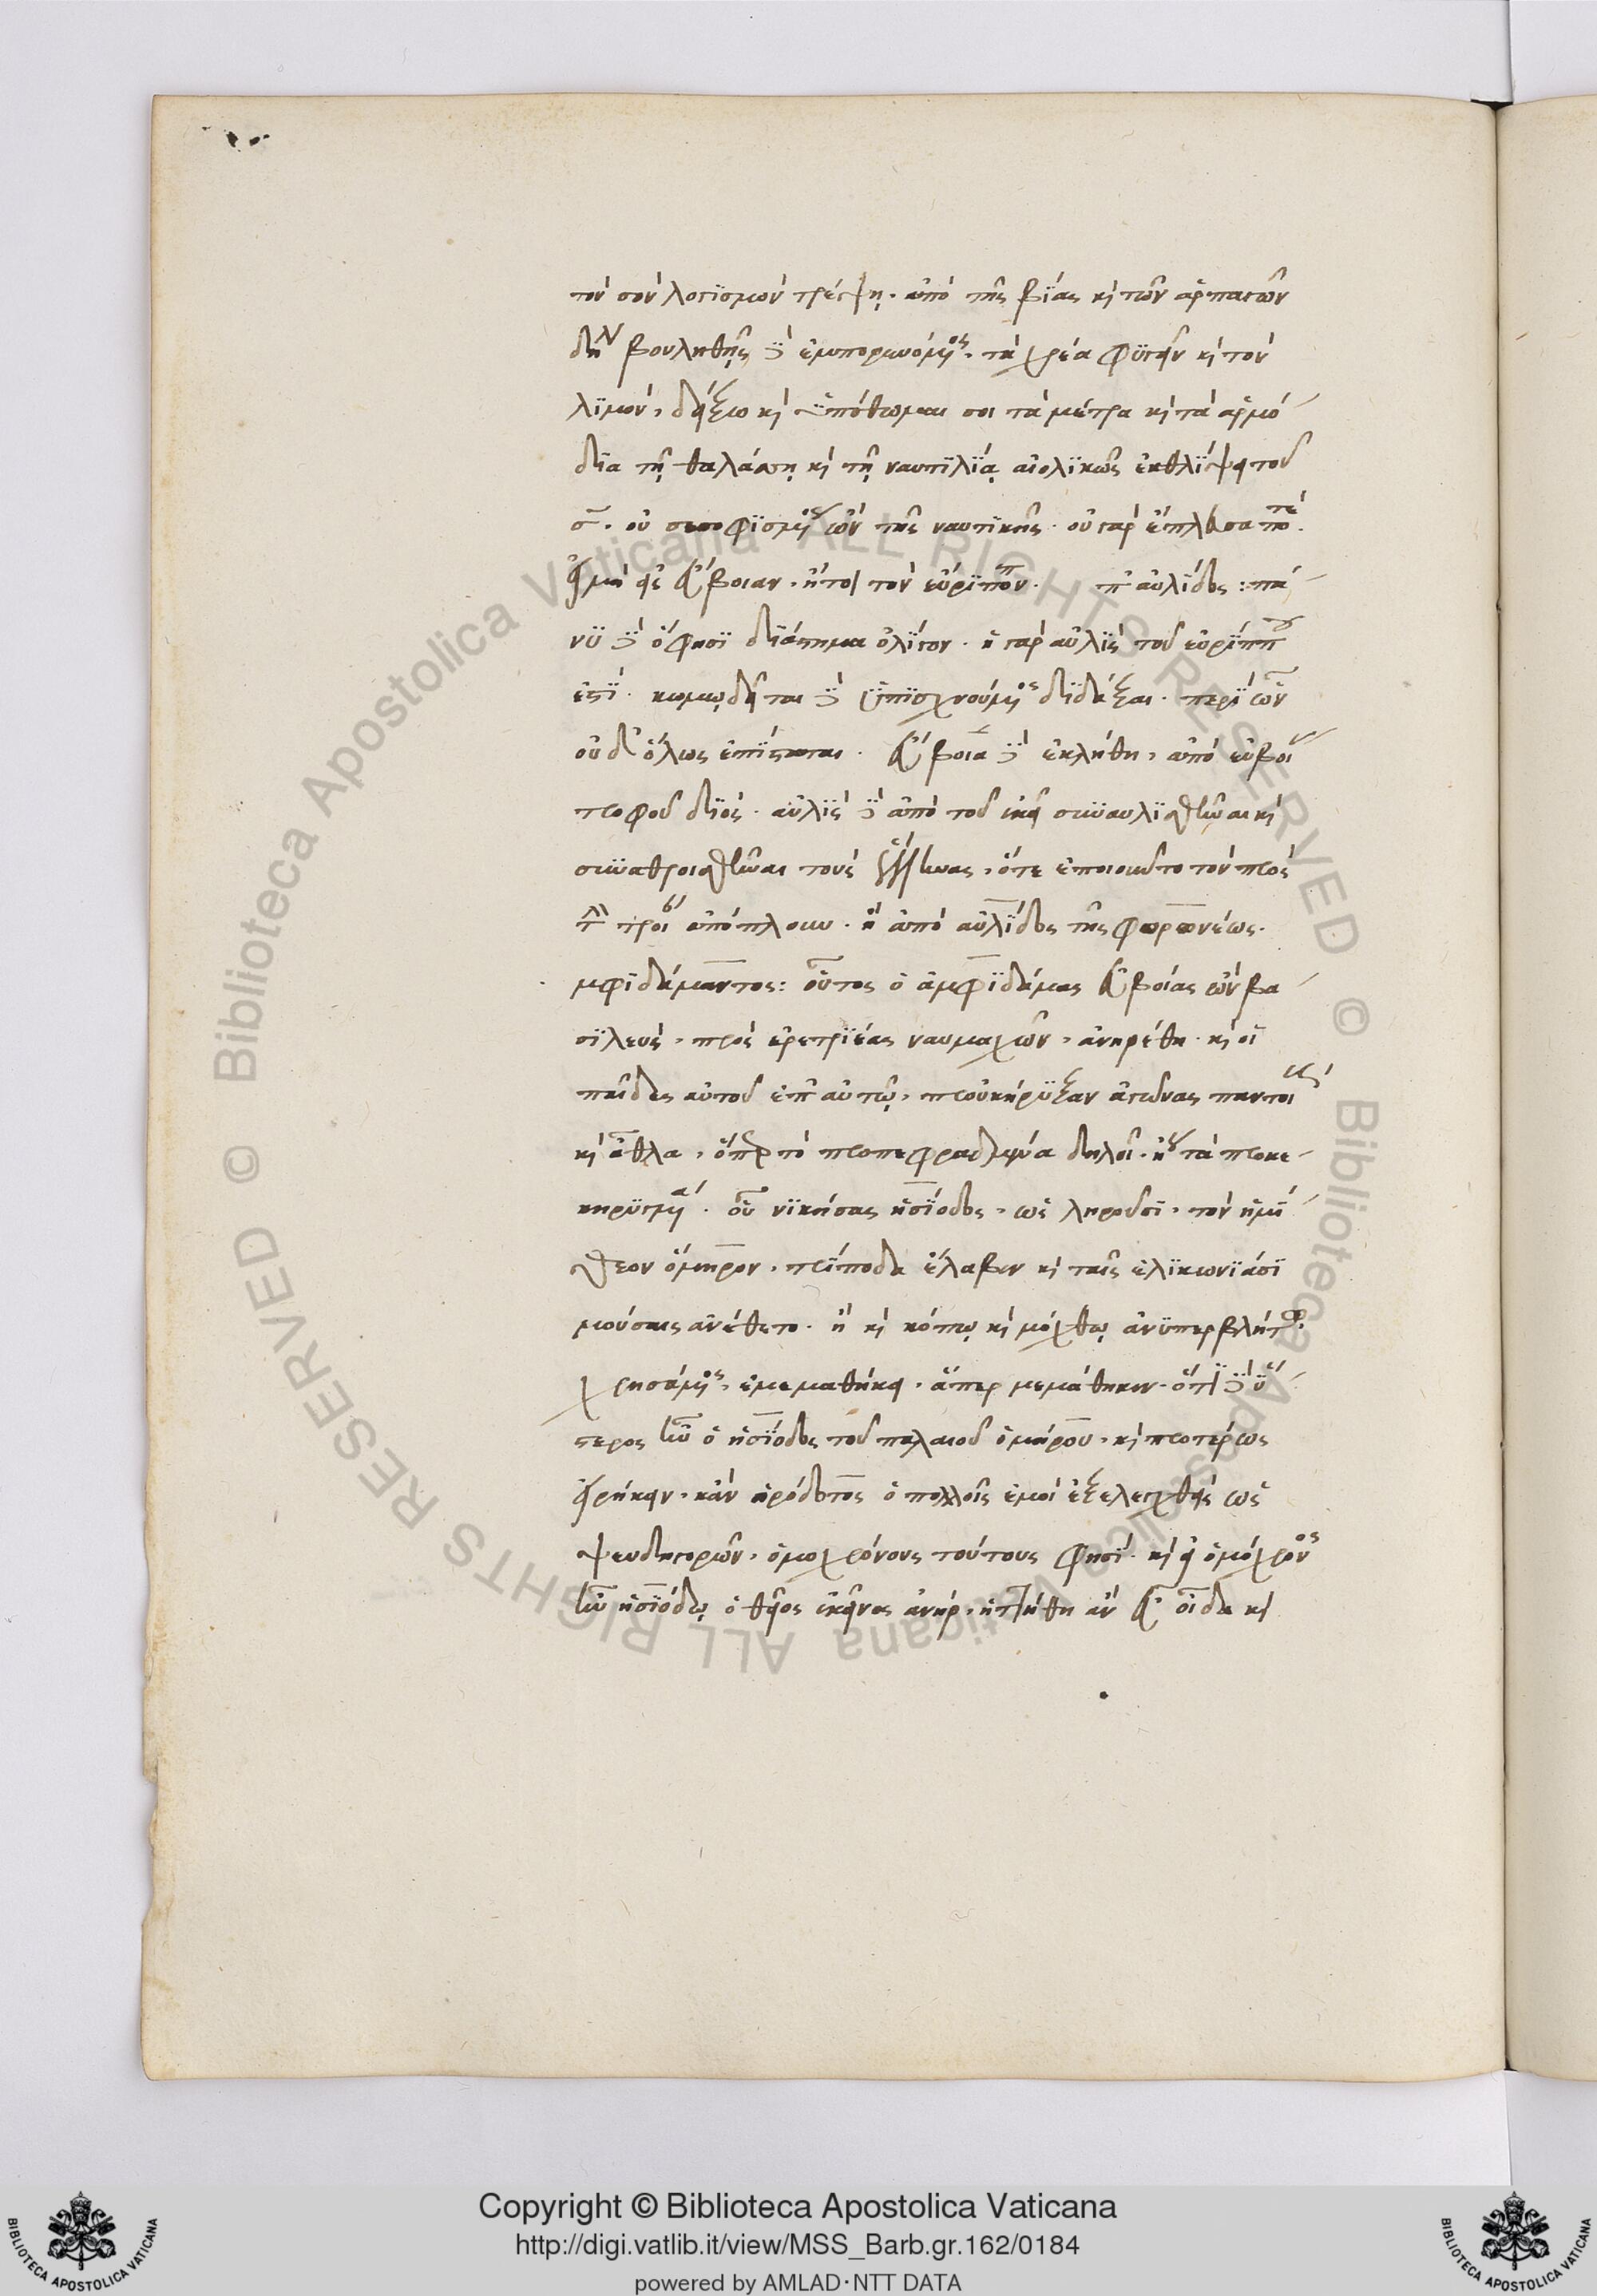 τὸν σὸν λογϊσμὸν τρέψῃ. ἀπὸ τῆς βΐας κὶ τῶν ἁρπαγῶν
βουληθῇς δὲ ἐμπορευόμενος. τὰ χρέα φϋγεῖν κὶ τὸν
λϊμὸν, δείξω κὶ ϋπόθωμαι σοι τὰ μέτρα κὶ τὰ ἁρμό
δϊα τῇ θαλάσσῃ κὶ τῇ ναυτϊλΐᾳ αἰολϊκῶς ἐκθλΐψει τοῦ
σ. οὐ σεσοφϊσμένος ὢν τῆς ναυτϊκῆς. οὐ γὰρ ἔπλευσα ποτέ.
εἰ μὴ εἰς εὔβοιαν. ἤτοι τὸν εὔρϊπον. ἐξ αὐλΐδος : πά
νϋ δὲ ὅ φησϊ διάστημα ὀλΐγον. ἡ γὰρ αὐλῒς τοῦ εὐρΐππου
ἐστΐ. κωμῳδεῖται δὲ ϋπϊσχνούμενος δϊδάξαι. περῒ ὧν
οὐδ' ὅλως ἐπΐσταται. εὔβοια δὲ ἐκλήθη, ἀπὸ εὐβοί
τροφοῦ δϊός. αὐλῒς δὲ ἀπὸ τοῦ ἐκεῖ συϋαυλϊσθῆναι κὶ
συϋαθροισθῆναι τοὺς ἕλληνας, ὅτε ἐποιοῦντο τὸν πρὸς
τὴν τροί ἀπόπλουν. ἢ ἀπὸ αὐλΐδος τῆς φορωνέως.
μφιδάμαντος: οὗτος ὁ ἀμφϊδάμας εὐβοίας ὢν βα
σϊλεὺς, πρὸς ἐρετρϊέας ναυμαχῶν, ἀνῃρέθη. κὶ οἱ
παῖδες αὐτοῦ ἐπ' αὐτῷ, προὐκήρϋξαν ἀγῶνας παντοι
κὶ ἆθλα, ὅπερ τὸ προπεφραδμένα δηλοῖ. ἤγουν τὰ προκε
κηρϋγμένα. οὗ νϊκήσας ἡσΐοδος, ὡς ληροῦσϊ, τὸν ἡμΐ
θεον ὅμηρον, τρΐποδα ἔλαβεν κὶ ταῖς ἑλϊκωνϊάσϊ
μούσαις ἀνέθετο. ἢ κὶ κόπῳ κὶ μόχθῳ ἀνϋπερβλήτῳ
χρησάμενος, ἐμεμαθήκει, ἅπερ μεμάθηκεν. ὅτϊ δὲ ϋ
στερος ἦν ὁ ἡσΐοδος τοῦ παλαιοῦ ὁμήρου, κὶ προτέρως
εἰρήκειν. κἂν ἡρόδοτος ὁ πολλοῖς ἐμοὶ ἐξελεγχθεὶς ὡς
ψευδηγορῶν, ὁμοχρόνους τούτους φησΐ. κὶ εἰ ὁμόχρονος
ἦν ἡσϊόδῳ ὁ θεῖος ἐκεῖνος ἀνὴρ, ἡττήθη ἂν εὖ οἶδα κὶ
Copyright © Biblioteca Apostolica Vaticana
http://digi.vatlib.it/view/MSS_Barb.gr.162/0184
powered by AMLAD·NTT DATA
© Biblioteca Apostolica Vaticana ALL RIGHTS RESERVED
© Biblioteca Apostolica Vaticana ALL RIGHTS RESERVED
BIBLIOTECA APOSTOLICA VATICANA
BIBLIOTECA APOSTOLICA VATICANA